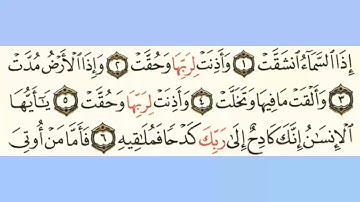 إِذَا ٱلسَّمَآءُ ٱنشَقَّتْ ١ وَأَذِنَتْ لِرَبِّهَا وَحُقَّتْ ٢ وَإِذَا ٱلْأَرْضُ مُدَّتْ
٣ وَأَلْقَتْ مَا فِيهَا وَتَخَلَّتْ ٤ وَأَذِنَتْ لِرَبِّهَا وَحُقَّتْ ٥ يَٰٓأَيُّهَا
ٱلْإِنسَٰنُ إِنَّكَ كَادِحٌ إِلَىٰ رَبِّكَ كَدْحًا فَمُلَٰقِيهِ ٦ فَأَمَّا مَنْ أُوتِىَ